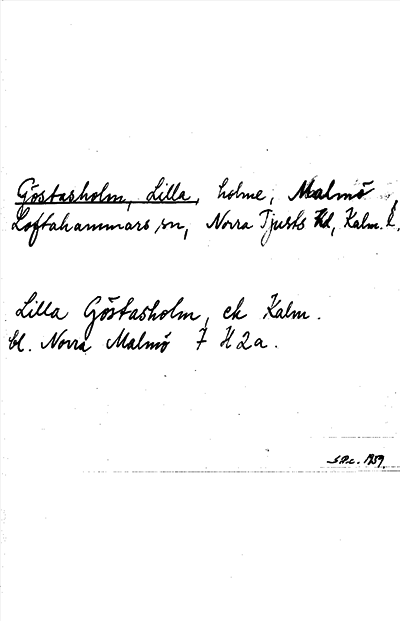 Göstasholm, Lilla, holme, Malmö,
Loftahammars sn, Norra Tjusts hd, Kalm. l.
Lilla Göstasholm, ek Kalm.
bl. Norra Malmö 7 H 2a.
1959